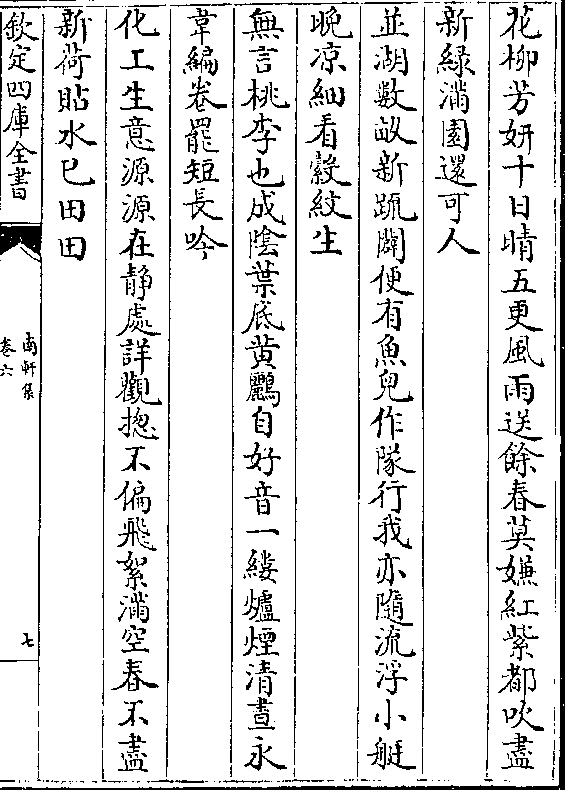 花柳芳妍十日晴五更風雨送餘春莫嫌紅紫都吹盡
新綠滿園還可人
並湖數畝新疏闢便有魚兒作隊行我亦隨流浮小艇
晩凉細看縠紋生
無言桃李也成陰葉底黄鸝自好音一縷爐煙清晝永
韋編卷罷短長吟
化工生意源源在静處詳觀揔不偏飛絮滿空春不盡
新荷貼水已田田
欽定四庫全書
南軒集
卷六
七